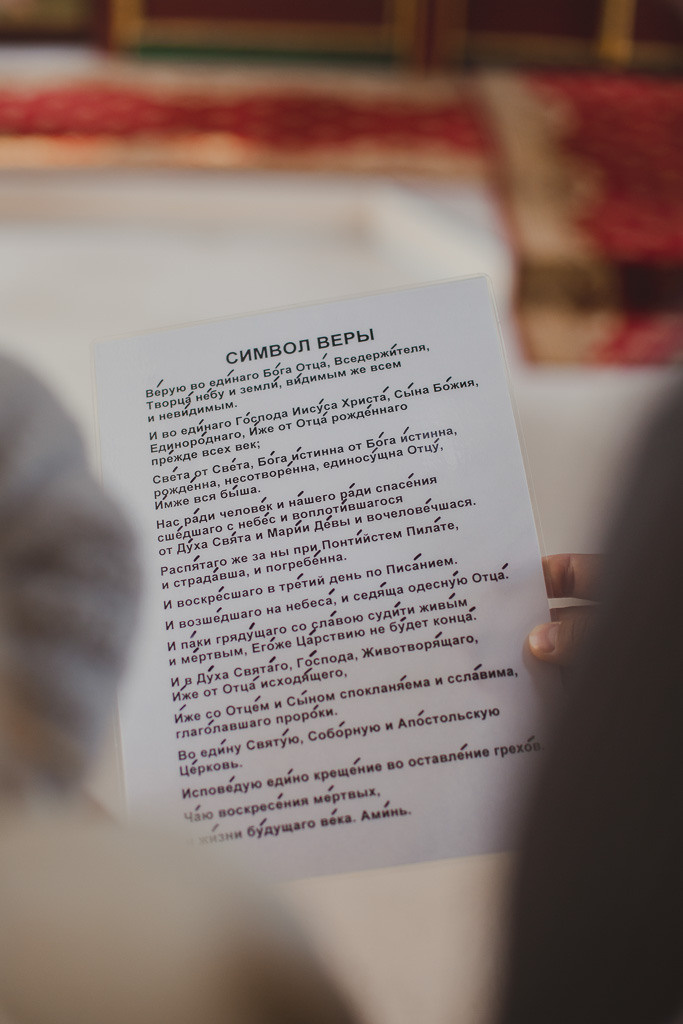 СИМВОЛ ВЕРЫ
Ве́рую во еди́наго Бо́га Отца́, Вседержи́теля,
Творца́ не́бу и земли́, ви́димым же всем
и неви́димым.
И во еди́наго Го́спода Иису́са Христа́, Сы́на Бо́жия,
Единоро́днаго, И́же от Отца́ рожде́ннаго
пре́жде всех век;
Све́та от Све́та, Бо́га и́стинна от Бо́га и́стинна,
рожде́нна, несотворе́нна, единосу́щна Отцу́,
И́мже вся бы́ша.
Нас ра́ди челове́к и на́шего ра́ди спасе́ния
сше́дшаго с небе́с и воплоти́вшагося
от Ду́ха Свя́та и Мари́и Де́вы и вочелове́чшася.
Распя́таго же за ны при Понти́йстем Пила́те,
и страда́вша, и погребе́нна.
И воскре́сшаго в тре́тий день по Писа́нием.
И возше́дшаго на небеса́, и седя́ща одесну́ю Отца́.
И па́ки гряду́щаго со сла́вою суди́ти живы́м
и ме́ртвым, Его́же Ца́рствию не бу́дет конца́.
И в Ду́ха Свята́го, Го́спода, Животворя́щаго,
И́же от Отца́ исходя́щего,
И́же со Отце́м и Сы́ном спокланя́ема и ссла́вима,
глаго́лавшаго проро́ки.
Во еди́ну Святу́ю, Собо́рную и Апо́стольскую
Це́рковь.
Испове́дую еди́но креще́ние во оставле́ние грехо́в.
Ча́ю воскресе́ния ме́ртвых,
жи́зни бу́дущаго ве́ка. Ами́нь.